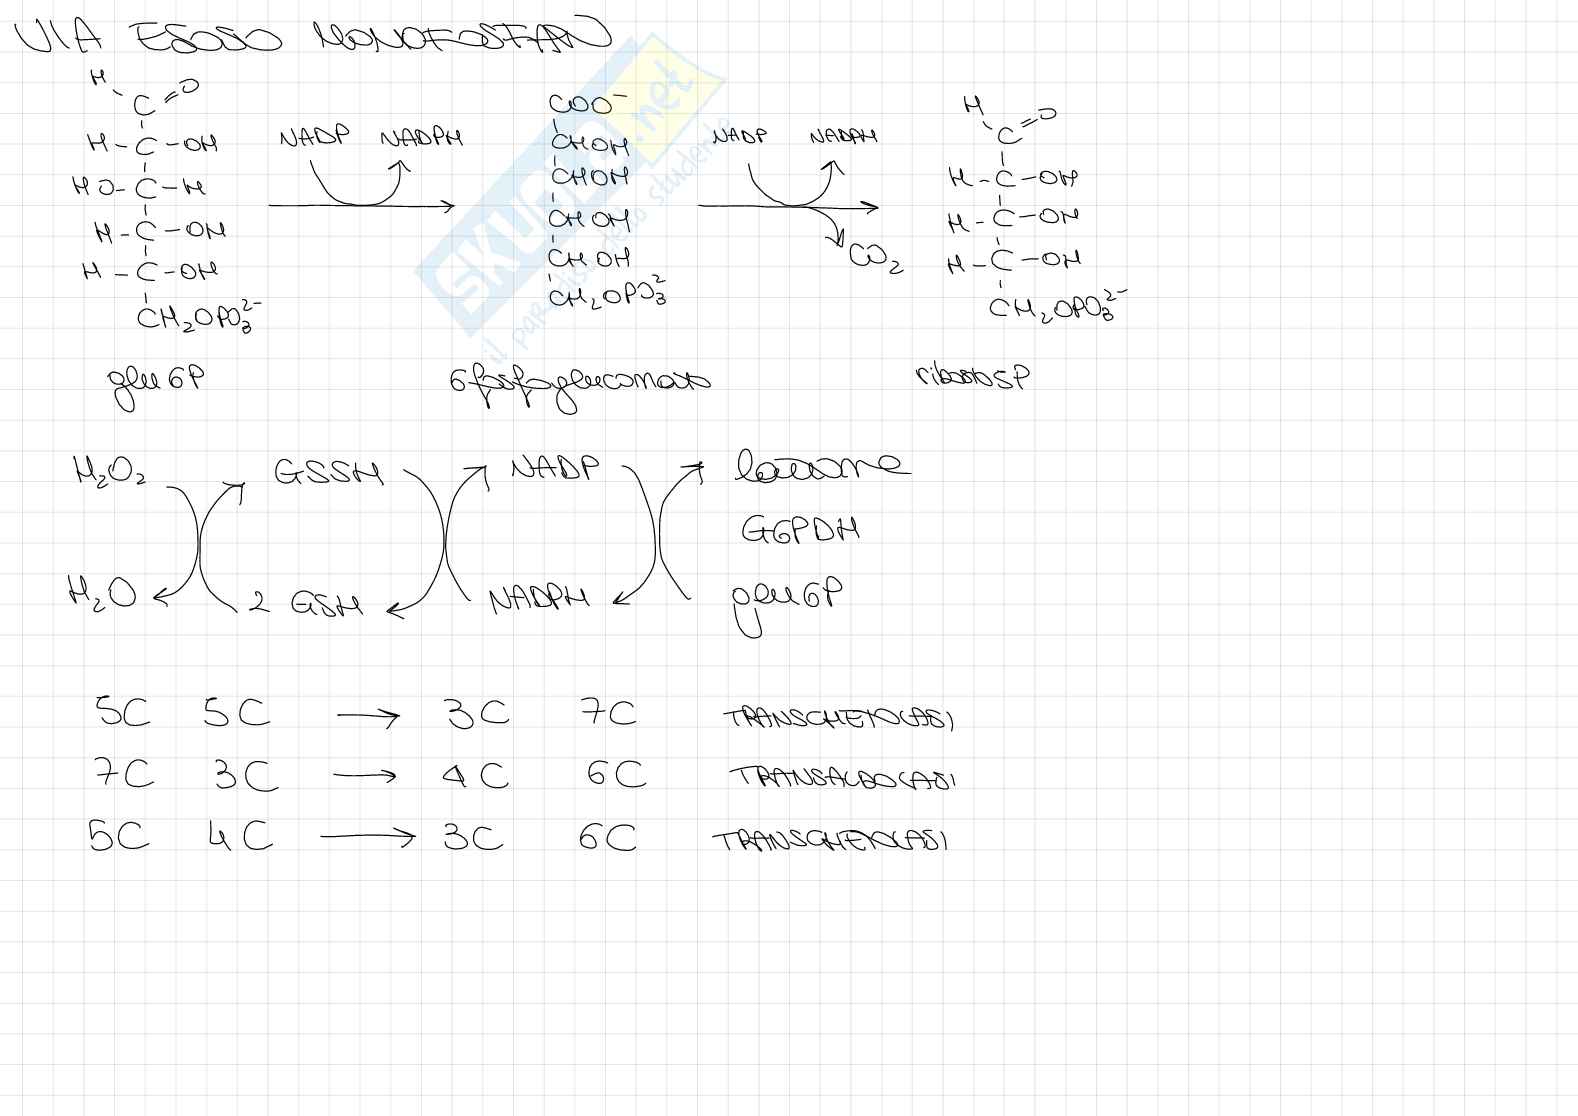 VIA ESOSO MONOFOSFATI
H C=O
H-C-OH
HO-C-H
H-C-OH
H-C-OH
CH2OPO3 2-
glu6P
NADP NADPH
COO-
CHOH
CHOH
CHOH
CHOH
CH2OPO3 2-
6fosfogluconato
NADP NADPH
CO2
H C=O
H-C-OH
H-C-OH
H-C-OH
CH2OPO3 2-
ribosio5P
H2O2 GSSH NADP lattone
G6PDH
H2O 2 GSH NADPH glu6P
5C 5C → 3C 7C TRANSCHETOLASI
7C 3C → 4C 6C TRANSALDOLASI
5C 4C → 3C 6C TRANSCHETOLASI
SKUOLA.net
il paradiso dello studente